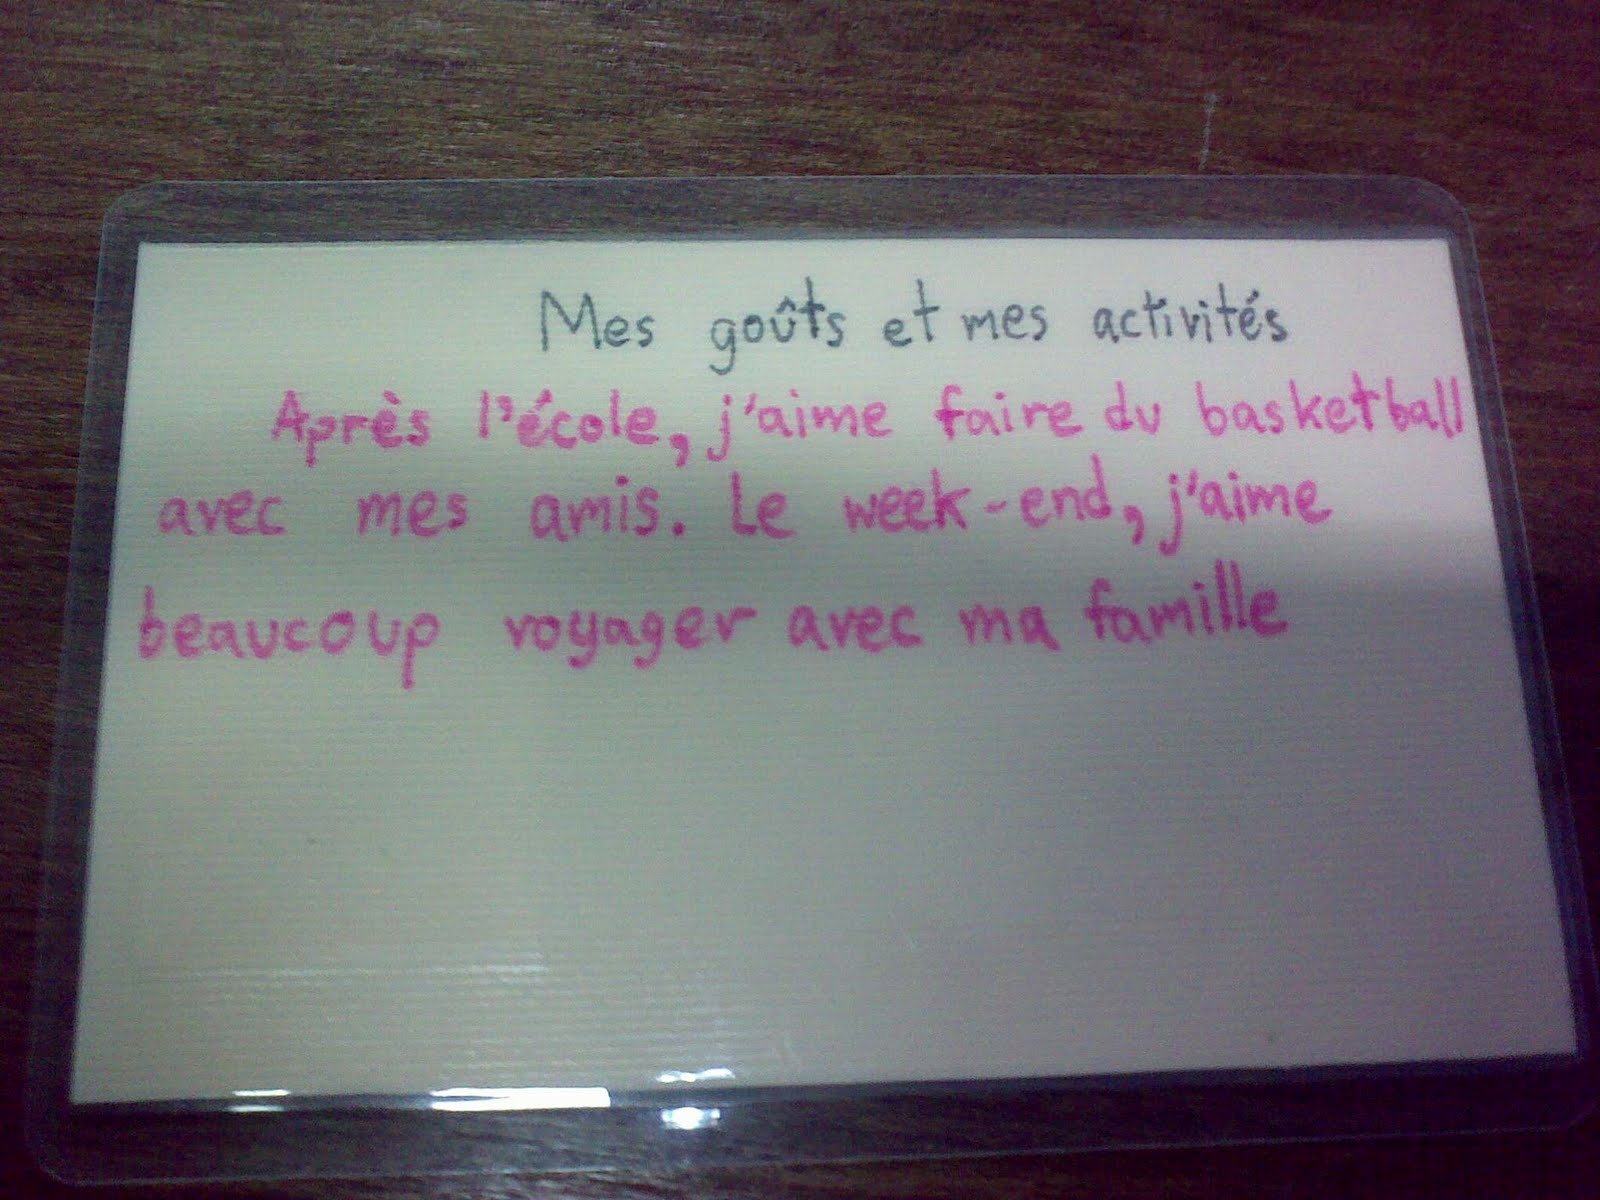 Mes goûts et mes activités
Après l'école, j'aime faire du basketball
avec mes amis. Le week-end, j'aime
beaucoup voyager avec ma famille